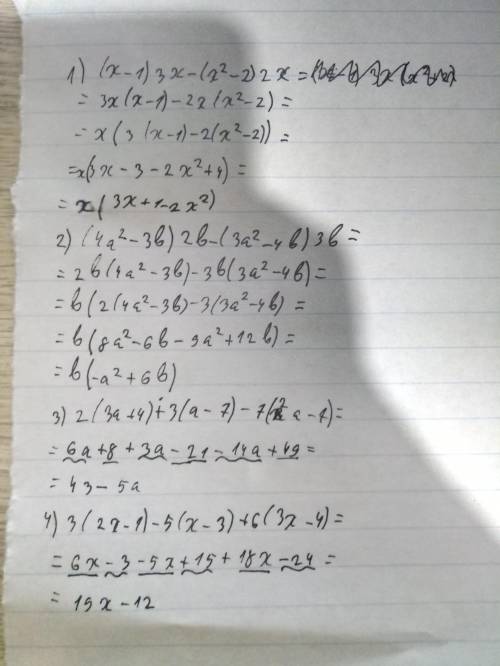 1) (x-1)3x-(x²-2)2x=
= 3x(x-1)-2x(x²-2)=
= x(3(x-1)-2(x²-2))=
=x(3x-3-2x²+4)=
= x(3x+1-2x²)
2) (4a²-3b)2b-(3a²-4b)3b=
= 2b(4a²-3b)-3b(3a²-4b)=
= b(2(4a²-3b)-3(3a²-4b)=
= b(8a²-6b-9a²+12b)=
= b(-a²+6b)
3) 2(3a+4)+3(a-7)-7(2a-7)=
= 6a+8+3a-21-14a+49=
= 43-5a
4) 3(2x-1)-5(x-3)+6(3x-4)=
= 6x-3-5x+15+18x-24=
= 19x-12